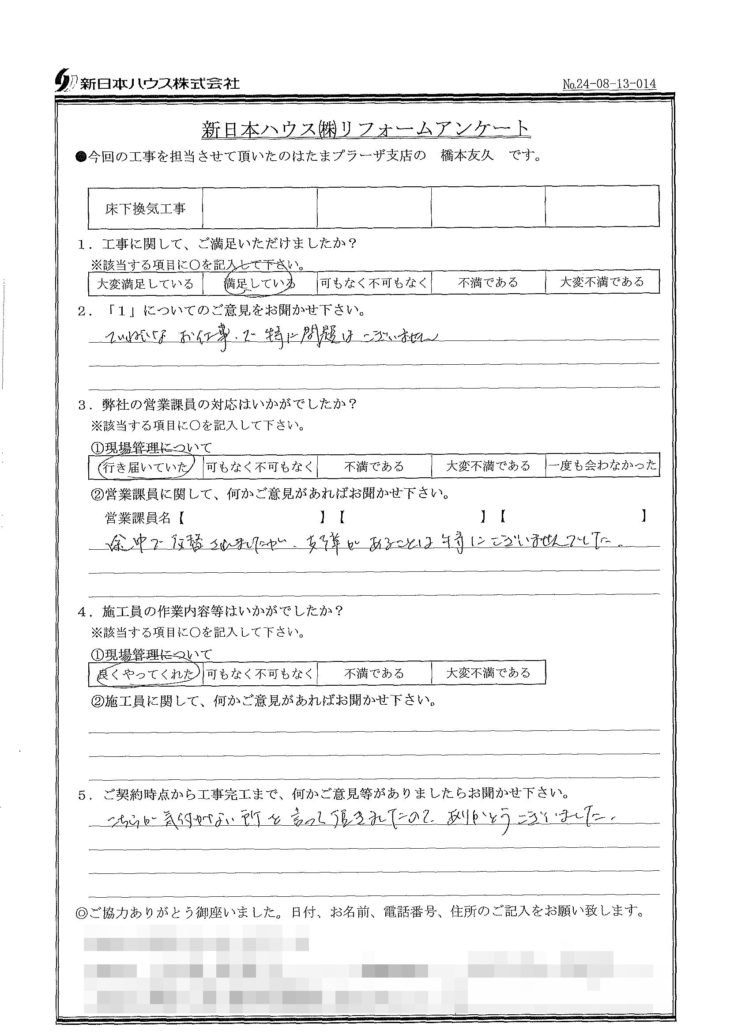 新日本ハウス株式会社
№24-08-13-014
新日本ハウス㈱リフォームアンケート
●今回の工事を担当させて頂いたのはたまプラーザ支店の 橋本友久 です。
床下換気工事
1．工事に関して、ご満足いただけましたか？
※該当する項目に○を記入して下さい。
大変満足している 満足している 可もなく不可もなく 不満である 大変不満である
2．「1」についてのご意見をお聞かせ下さい。
ていねいな お仕事で 特に問題は ございません
3．弊社の営業課員の対応はいかがでしたか？
※該当する項目に○を記入して下さい。
①現場管理について
行き届いていた 可もなく不可もなく 不満である 大変不満である 一度も会わなかった
②営業課員に関して、何かご意見があればお聞かせ下さい。
営業課員名【 】【 】【 】
途中で 交替されましたが、支障が あることは 特にございませんでした。
4．施工員の作業内容等はいかがでしたか？
※該当する項目に○を記入して下さい。
①現場管理について
良くやってくれた 可もなく不可もなく 不満である 大変不満である
②施工員に関して、何かご意見があればお聞かせ下さい。
5．ご契約時点から工事完工まで、何かご意見等がありましたらお聞かせ下さい。
こちらが 気付かない所を 言って頂きましたので、ありがとうございました。
◎ご協力ありがとう御座いました。日付、お名前、電話番号、住所のご記入をお願い致します。